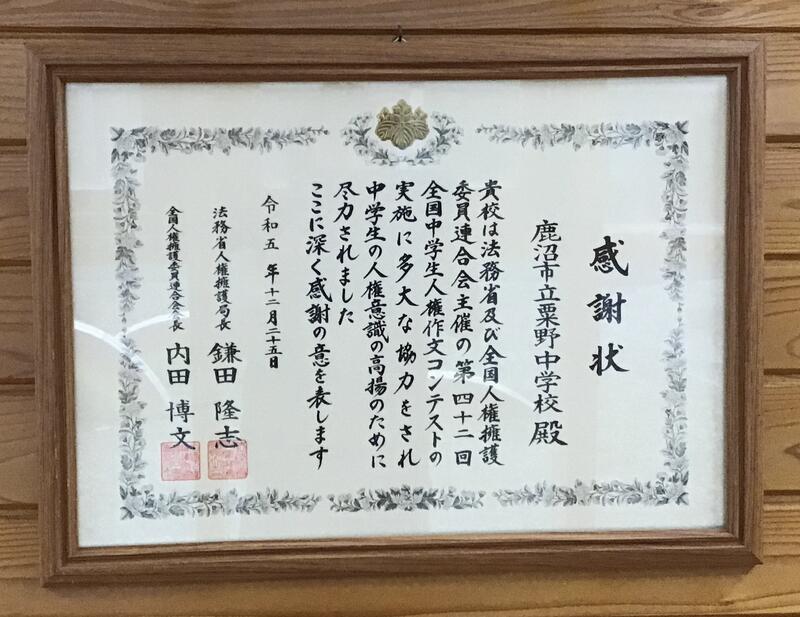 感謝状
鹿沼市立粟野中学校殿
貴校は法務省及び全国人権擁護
委員連合会主催の第四十二回
全国中学生人権作文コンテストの
実施に多大な協力をされ
中学生の人権意識の高揚のために
尽力されました
ここに深く感謝の意を表します
令和五年十二月二十五日
法務省人権擁護局長 鎌田隆志
全国人権擁護委員連合会長 内田博文